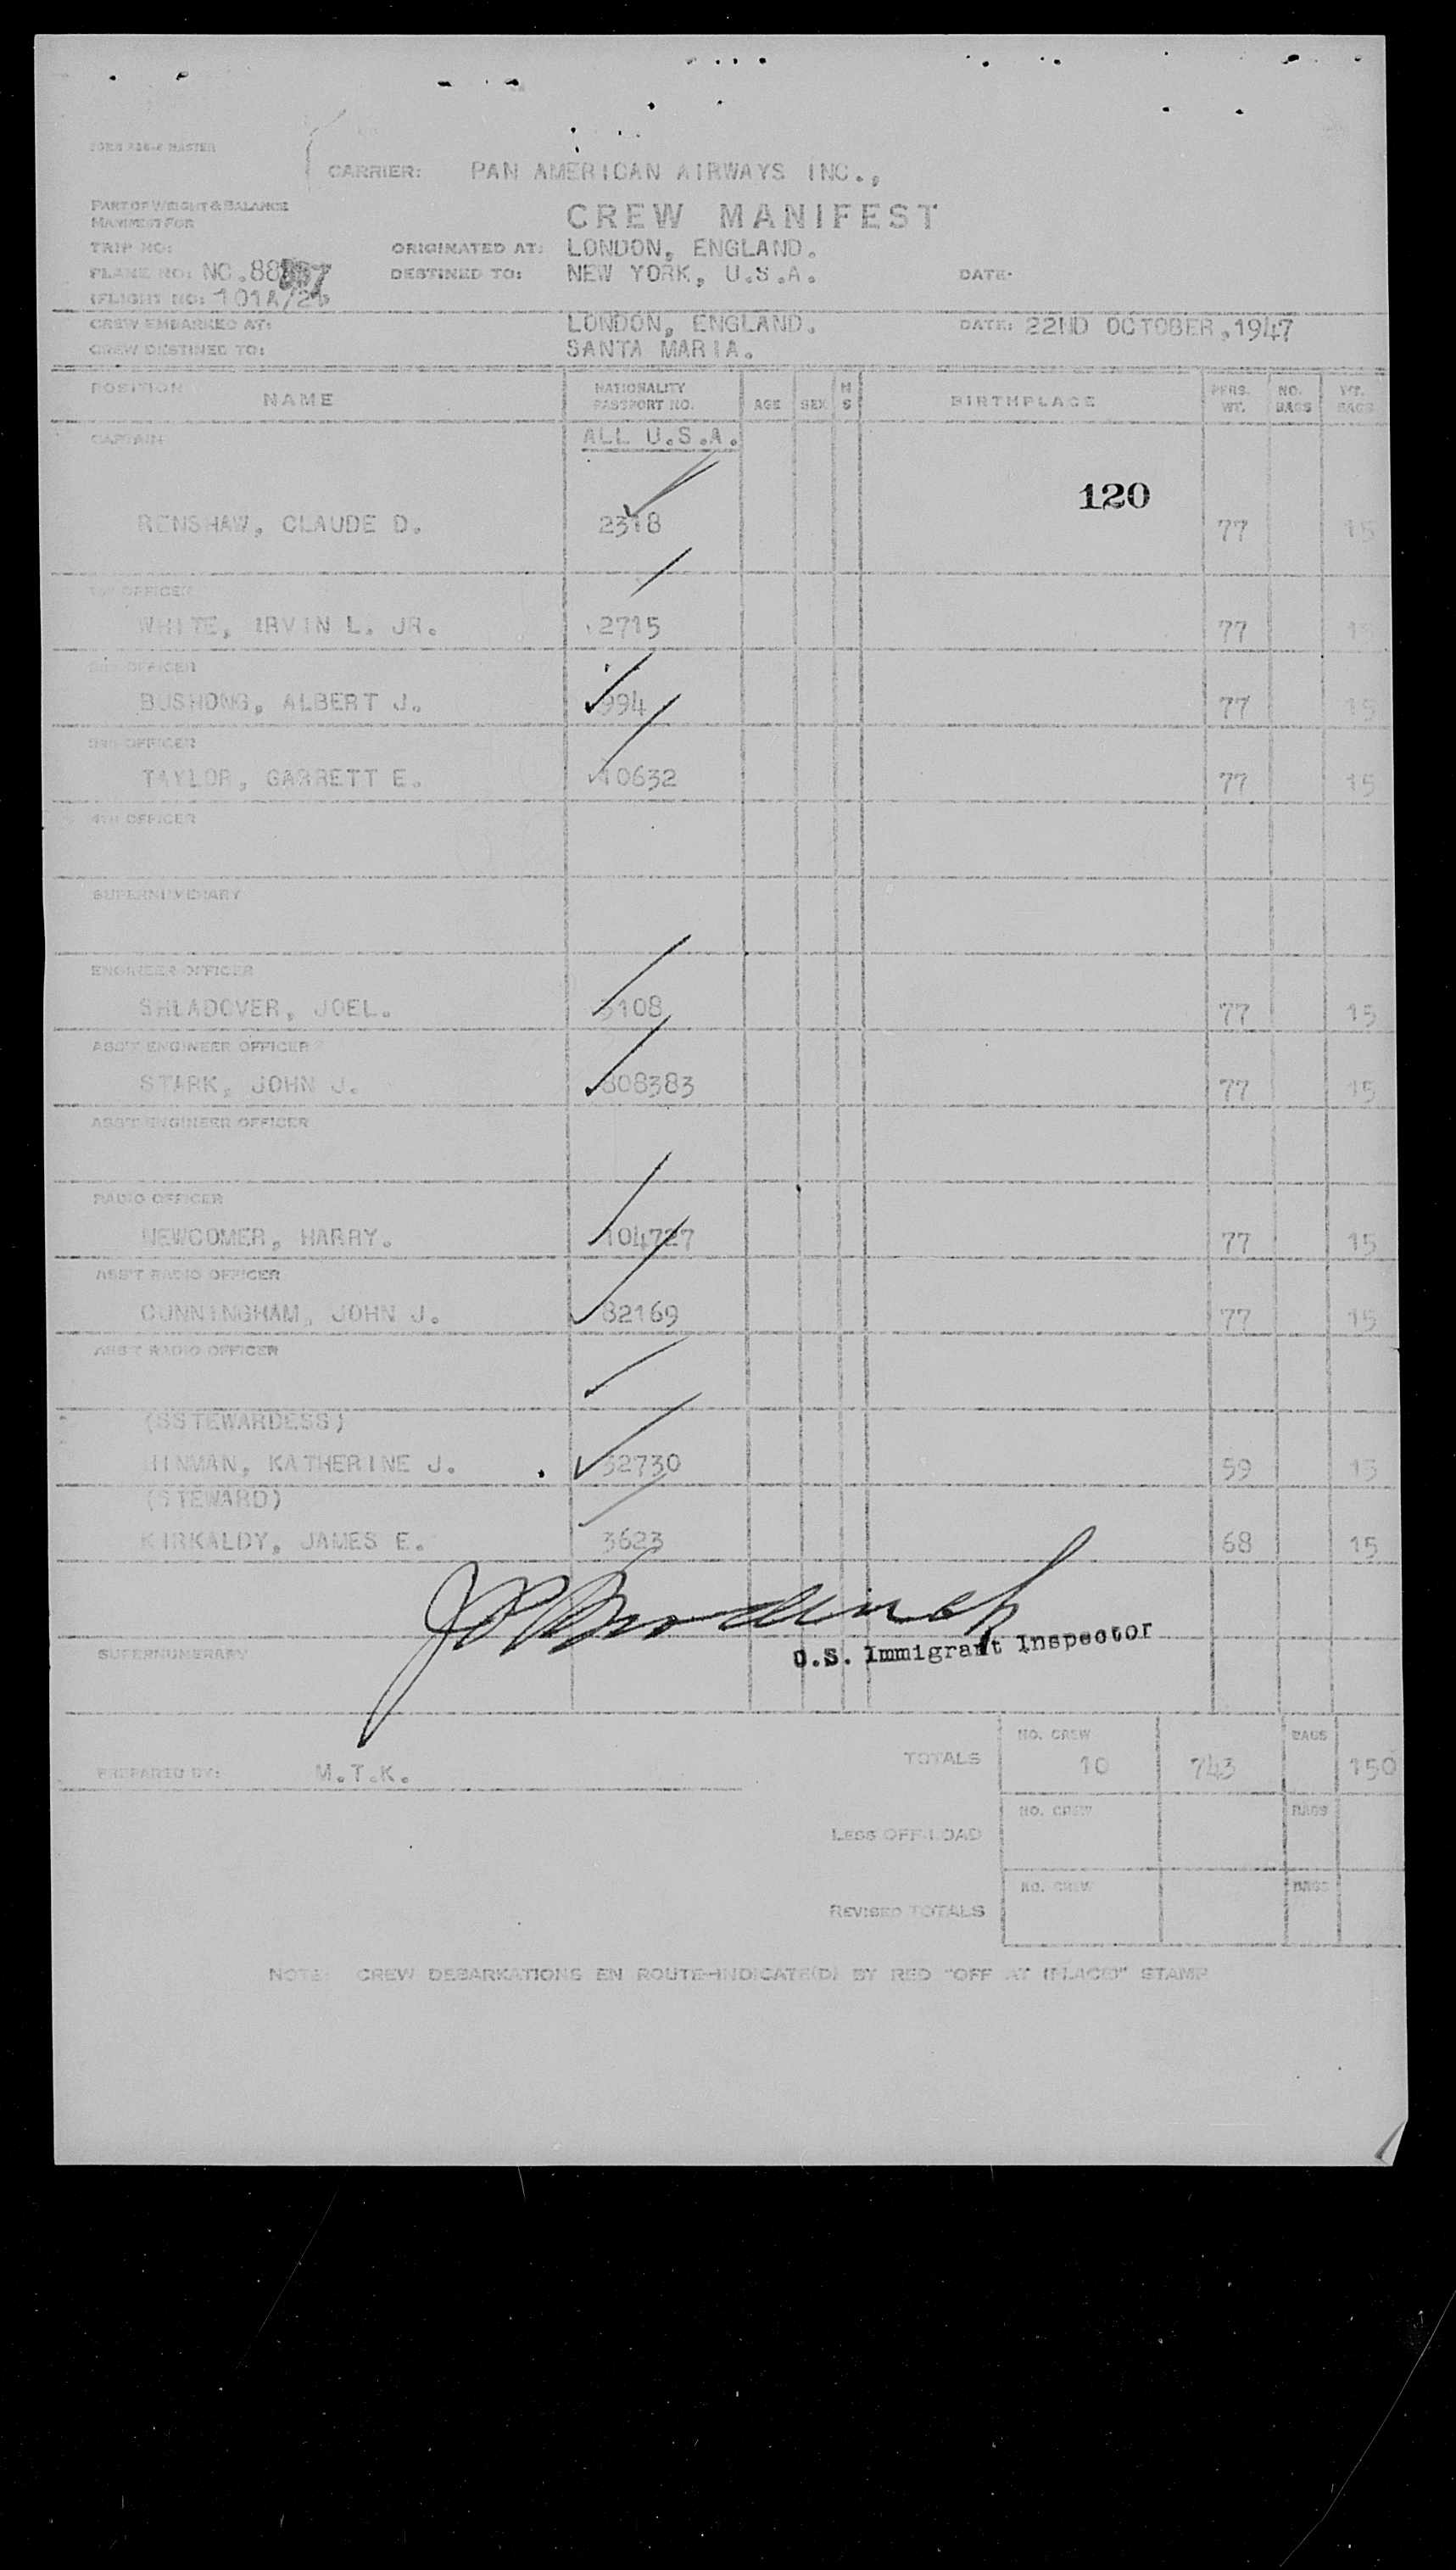 CARRIER: PAN AMERICAN AIRWAYS INC.,
PART OF WEIGHT & BALANCE
MANIFEST FOR
CREW MANIFEST
TRIP NO:
ORIGINATED AT: LONDON, ENGLAND.
PLANE NO: NC.88
DESTINED TO: NEW YORK, U.S.A.
DATE:
(FLIGHT NO: 101A/
CREW EMBARKED AT: LONDON, ENGLAND. DATE: 22ND OCTOBER, 1947
CREW DESTINED TO: SANTA MARIA.
POSITION NAME NATIONALITY PASSPORT NO. AGE SEX M S BIRTHPLACE PERS. WT. NO. BAGS WT. BAGS
CAPTAIN ALL U.S.A.
120
RENSHAW, CLAUDE D. 2318 77 15
1ST OFFICER
WHITE, IRVIN L. JR. 2715 77 15
2ND OFFICER
BUSHONG, ALBERT J. 994 77 15
3RD OFFICER
TAYLOR, GARRETT E. 10632 77 15
4TH OFFICER
SUPERNUMERARY
ENGINEER OFFICER
SHLADOVER, JOEL. 108 77 15
ASS'T ENGINEER OFFICER
STARK, JOHN J. 808383 77 15
ASS'T ENGINEER OFFICER
RADIO OFFICER
NEWCOMER, HARRY. 104727 77 15
ASS'T RADIO OFFICER
CUNNINGHAM, JOHN J. 82169 77 15
ASS'T RADIO OFFICER
(SSTEWARDESS)
HINMAN, KATHERINE J. 32730 59 15
(STEWARD)
KIRKALDY, JAMES E. 3623 68 15
U.S. Immigrant Inspector
SUPERNUMERARY
NO. CREW BAGS
TOTALS 10 743 150
PREPARED BY: M.T.K.
NO. CREW BAGS
LESS OFF-LOAD
NO. CREW BAGS
REVISED TOTALS
NOTE: CREW DEBARKATIONS EN ROUTE-INDICATE(D) BY RED "OFF AT (PLACE)" STAMP